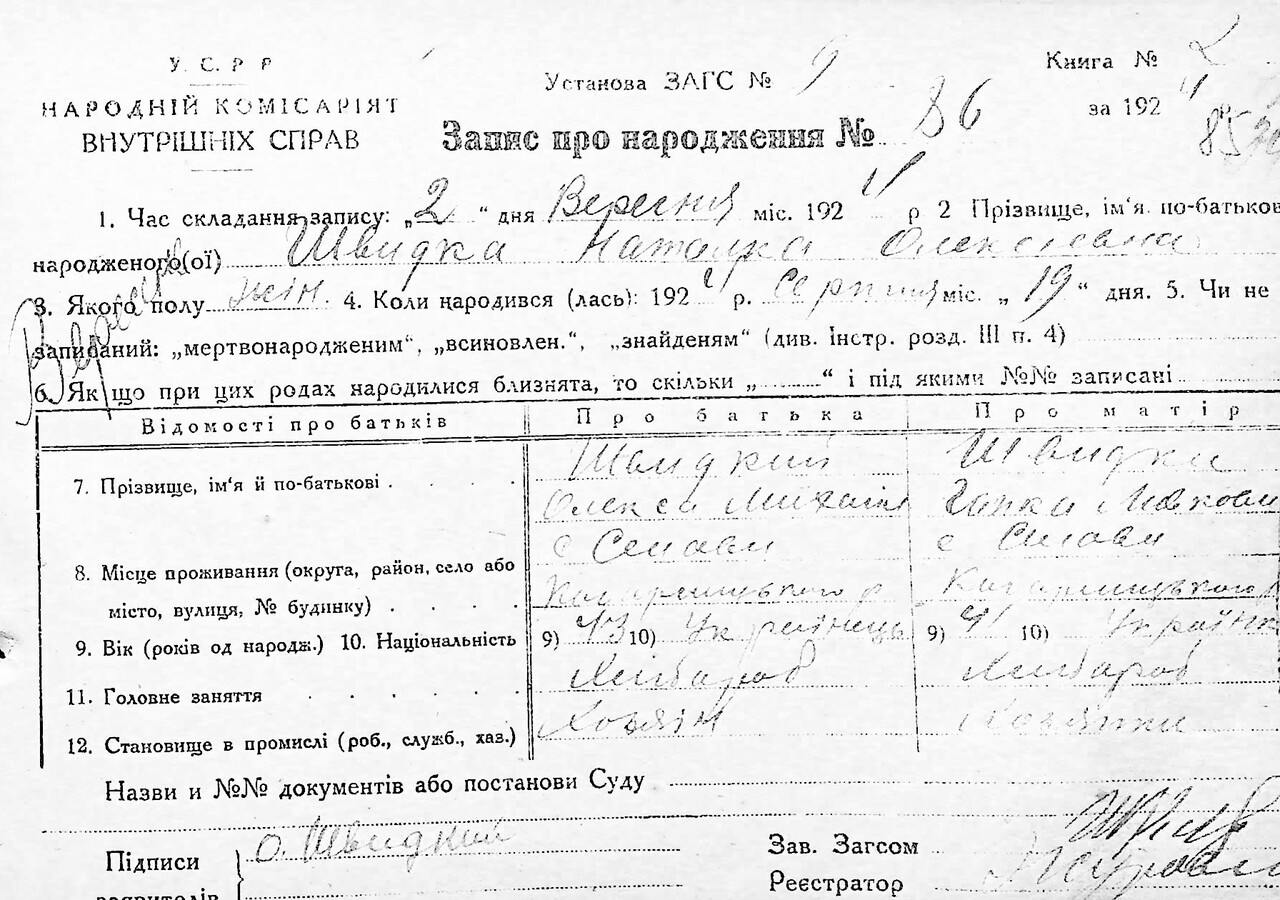 У. С. Р Р
НАРОДНІЙ КОМІСАРІЯТ
ВНУТРІШНІХ СПРАВ
Установа ЗАГС № 9
Книга № 2
за 1924 р.
Запис про народження № 86
85
1. Час складання запису: „2 “ дня Вересня міс. 1924 р 2 Прізвище, ім'я. по-батькові
народженого(ої) Швидка Наталка Олексієвна
3. Якого полу жін. 4. Коли народився (лась): 1924 р. Серпня міс. „ 19 “ дня. 5. Чи не
записаний: „мертвонародженим“, „всиновлен.“, „знайденям“ (див. Інстр. розд. III п. 4)
6. Якщо при цих родах народилися близнята, то скільки „ “ і під якими №№ записані
Відомості про батьків Про батька Про матір
7. Прізвище, ім'я й по-батькові Швидкий Швидка
Олекса Михайл Гапка
8. Місце проживання (округа, район, село або с Семави с Семави
місто, вулиця, № будинку)
9. Вік (років од народж.) 10. Національність 9) 43 10) Українець 9) 41 10) Українк
11. Головне заняття Хлібароб Хлібароб
12. Становище в промислі (роб., служб., хаз.) Хозяін Хозяйка
Назви и №№ документів або постанови Суду
Підписи О. Швидкий
заявителів
Зав. Загсом
Реєстратор